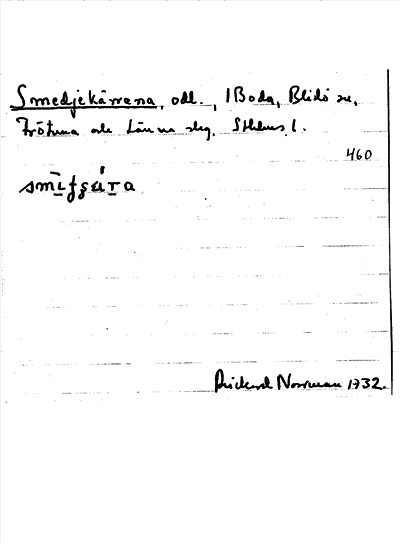 Smedjekärrena, odl., 1 Boda, Blidö sn,
Frötuna och Länna slg, Sthlms l.
460
Rickard Norrman 1932.